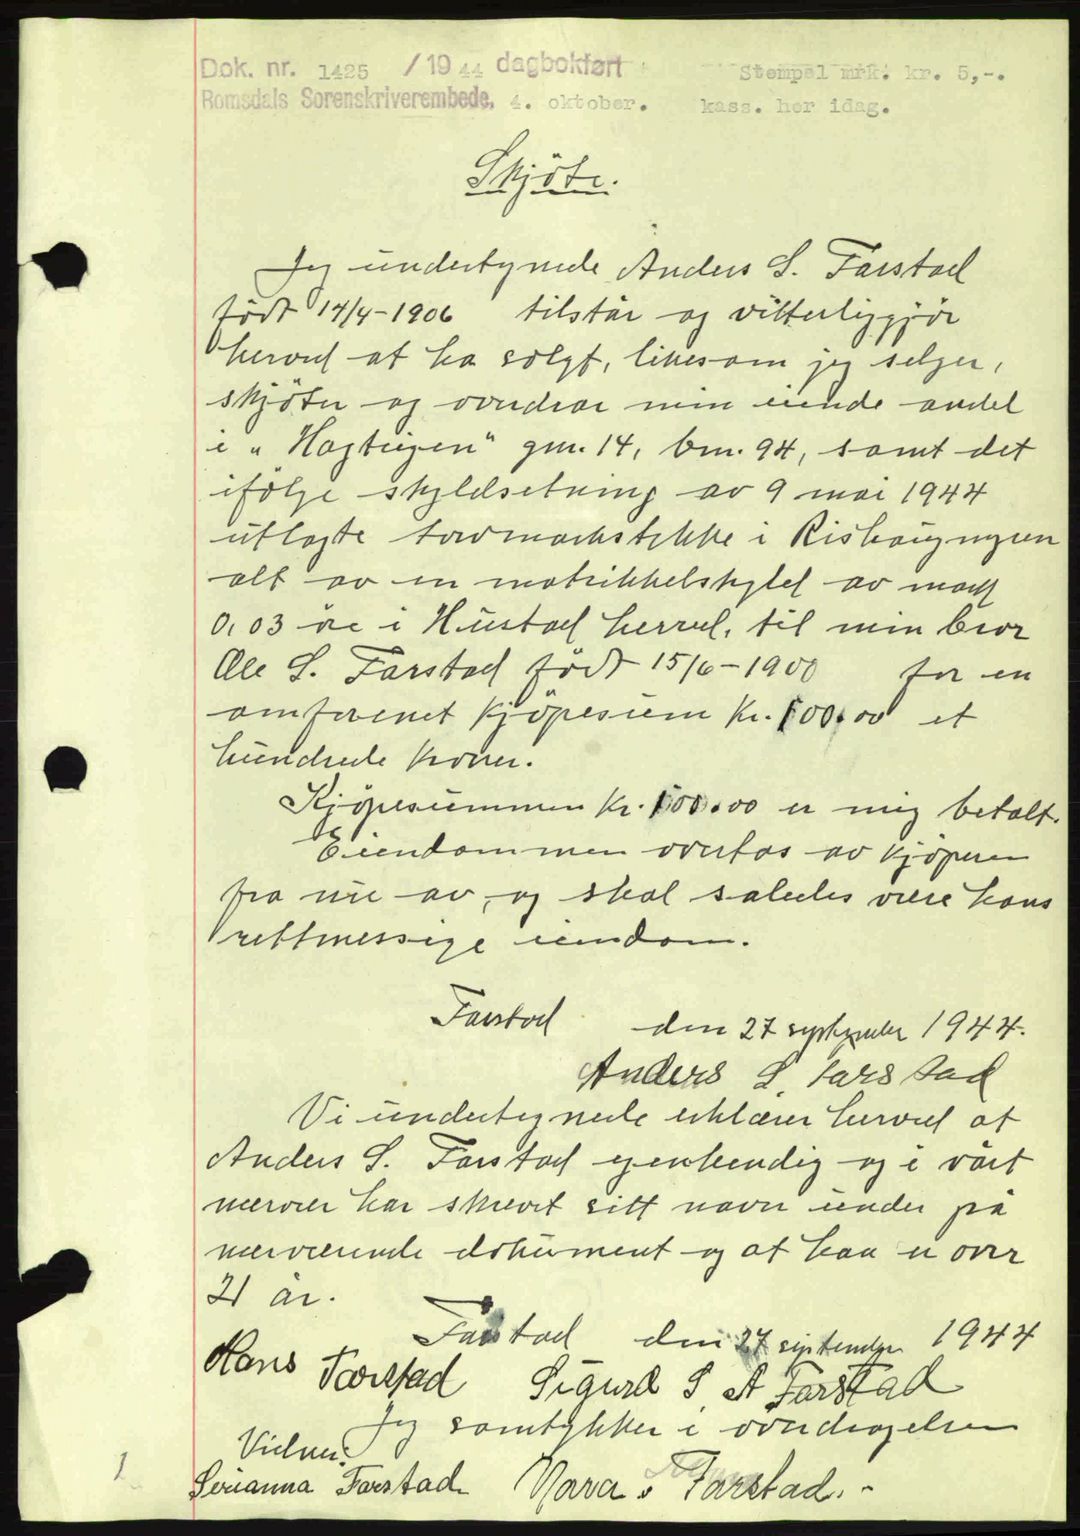 Dok. nr. 1425 / 19 44 dagbokført Stempel mrk. kr. 5,-.
Romsdals Sorenskriverembede, 4. oktober. kass. her idag.
Skjöte.
Jeg undertegnede Anders S. Farstad
född 14/4-1906 tilstår og vitterliggjör
herved at ha solgt, likesom jeg selger,
skjöter og overdrar min eiende andel
i "Hagteigen" gnr. 14, bnr. 94, samt det
ifölge skyldsetning av 9 mai 1944
utlagte torvmarkstykke i Rishaugmyren
alt av en matrikkelskyld av mark
0,03 öre i Hustad herred, til min bror
Ole S. Farstad född 15/6-1900 for en
omforenet kjöpesum kr. 100.00 et
hundrede kroner.
Kjöpesummen kr. 100.00 er mig betalt.
Eiendommen overtas av kjöperen
fra nu av, og skal saledes være hans
rettmessige eiendom.
Farstad den 27 september 1944.
Anders S. Farstad
Vi undertegnede erklærer herved at
Anders S. Farstad egenhendig og i vårt
nærver har skrevet sitt navn under på
nærværende dokument og at han er over
21 år.
Farstad den 27 september 1944
Hans Farstad Sigurd S. A. Farstad
Jeg samtykker i overdragelsen
Vidner:
Serianna Farstad Nora Farstad.